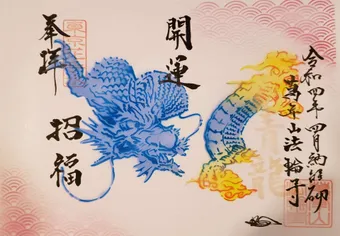 令和四年四月納経碑
萬年山法輪寺
青龍
開運
奉拝
招福